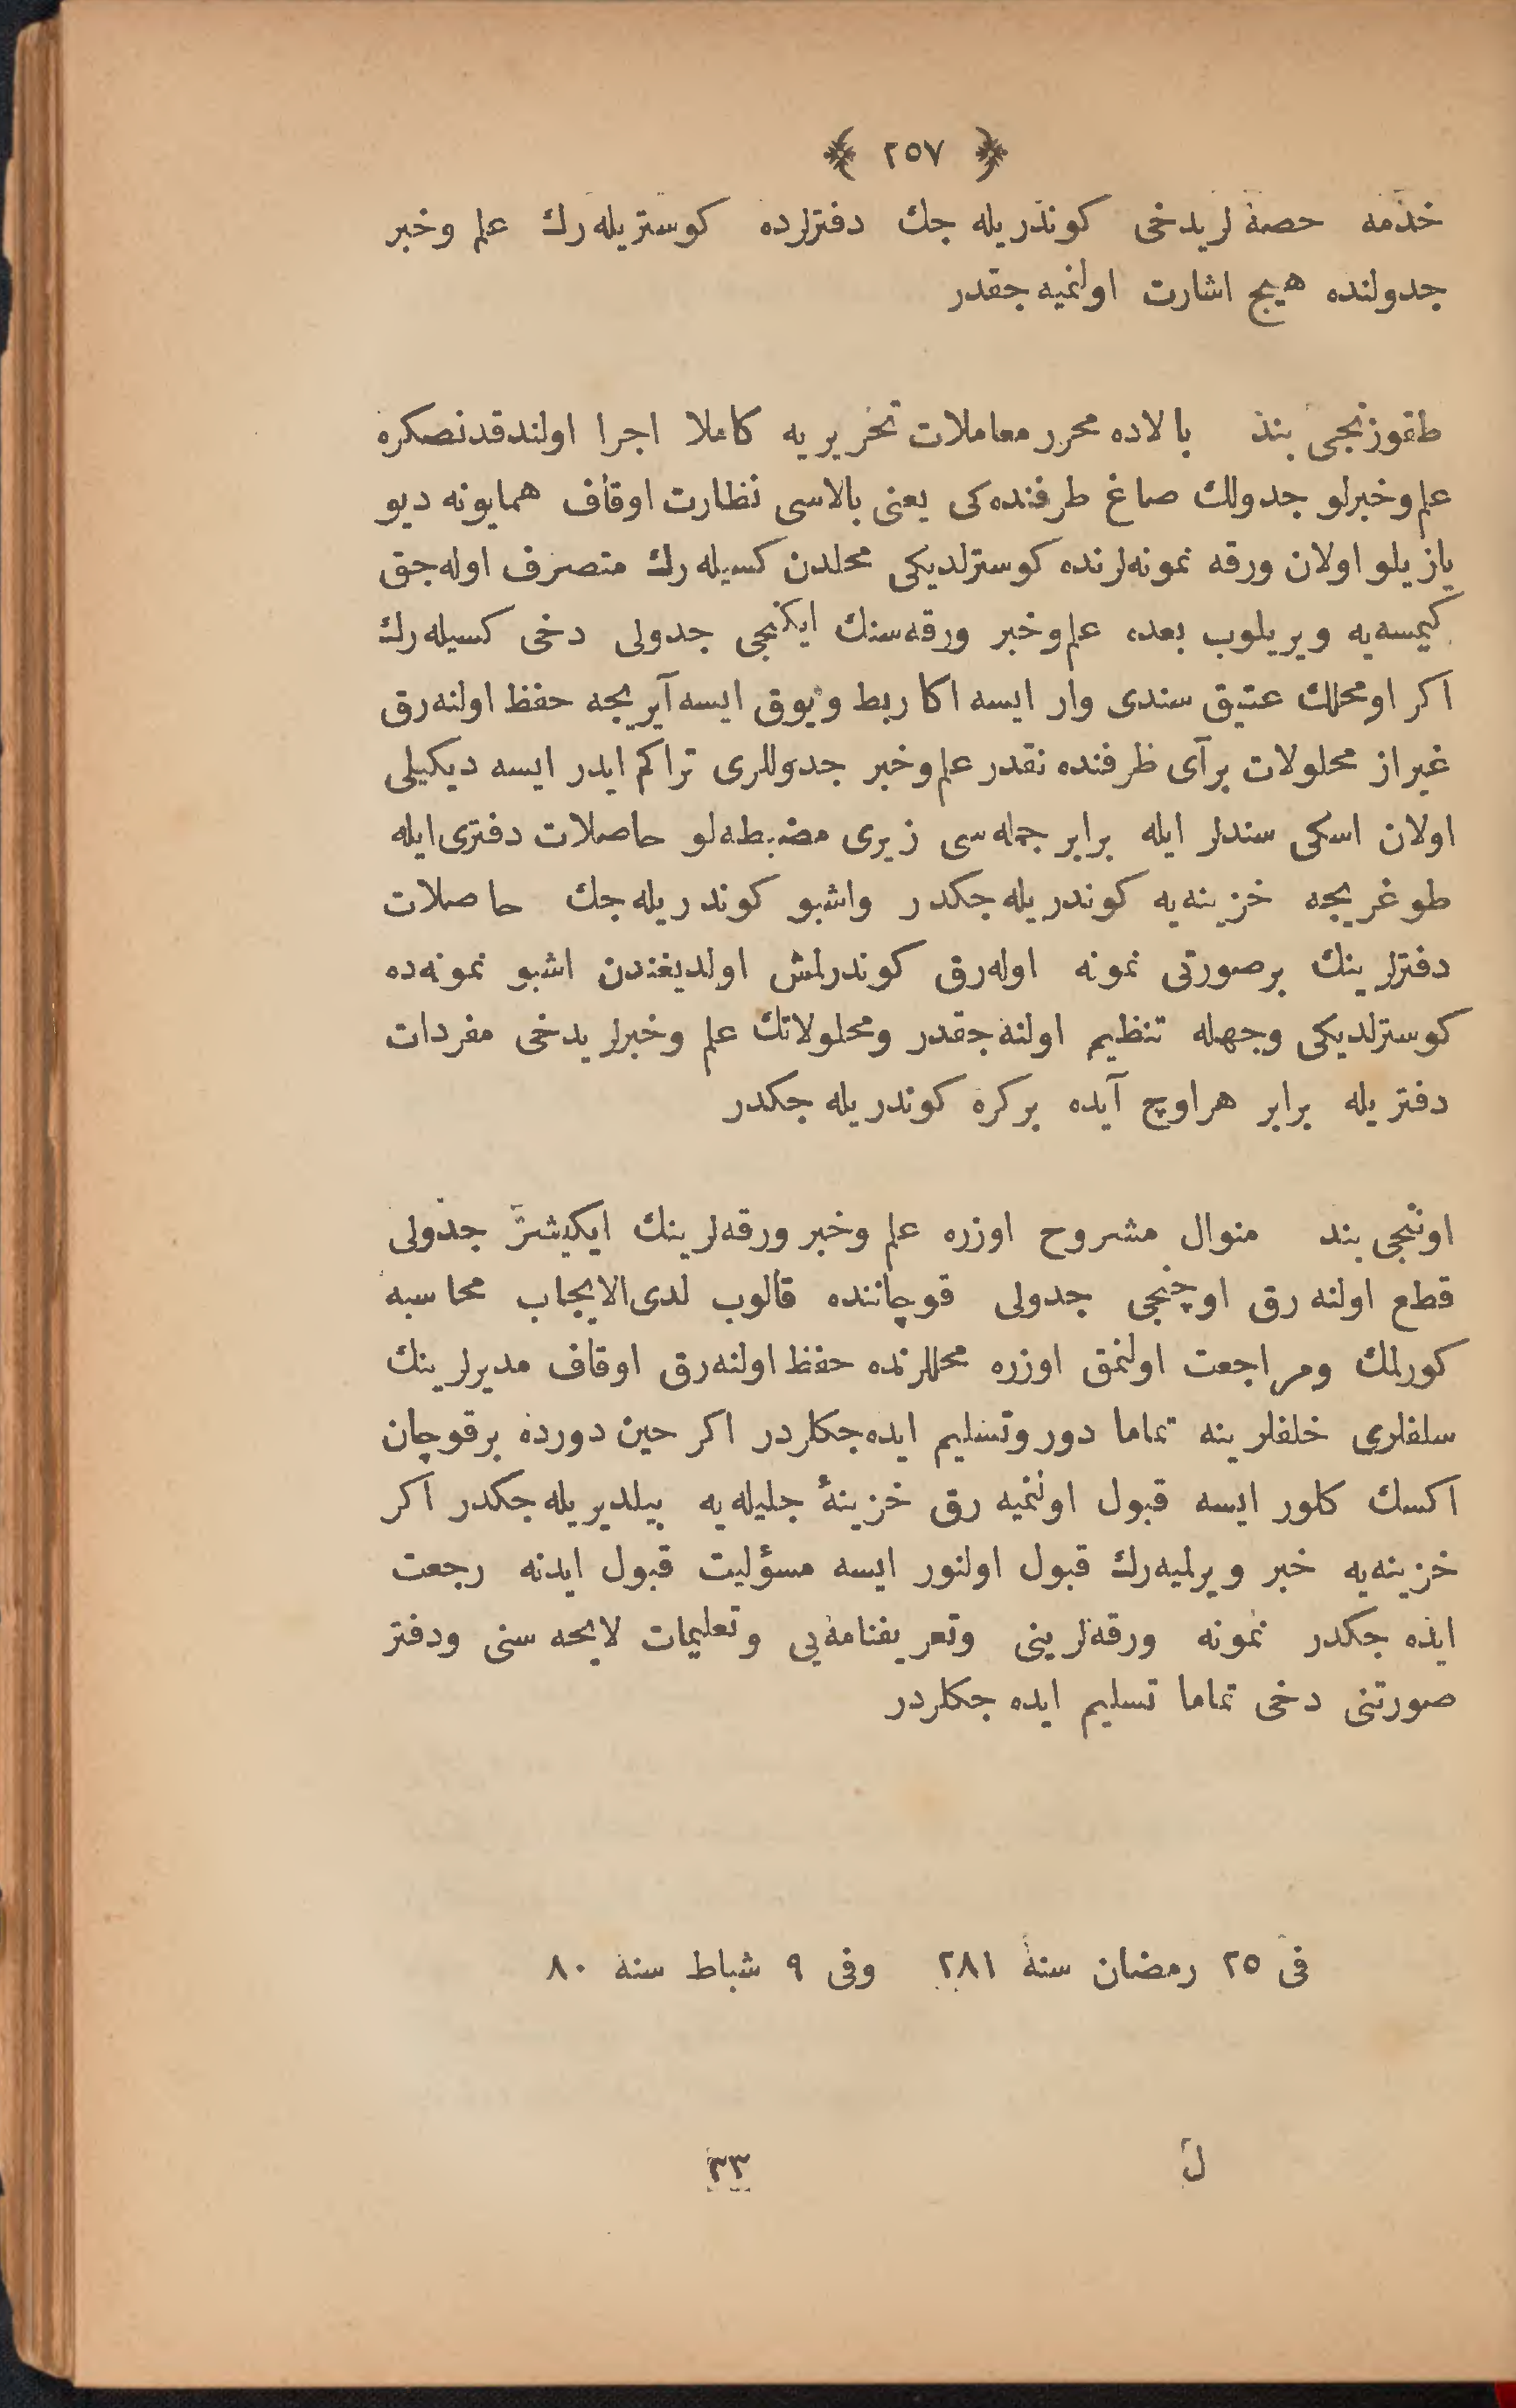 ﴿ ٢٥٧ ﴾
خدمه حصه لریدخی كوندریله جك دفترلرده كوستریله رك علم وخبر
جدولنده هیچ اشارت اولنمیه جقدر
طقوزنجی بند بالاده محرر معاملات تحریریه كاملا اجرا اولندقدنصكره
علم وخبرلو جدولك صاغ طرفنده كی یعنی بالاسی نظارت اوقاف همایونه دیو
یازیلو اولان ورقه نمونه لرنده كوسترلدیكی محلدن كسیله رك متصرف اوله جق
كیمسه یه ویریلوب بعده علم وخبر ورقه سنك ایكنجی جدولی دخی كسیله رك
اكر اومحلك عتیق سندی وار ایسه اكا ربط ویوق ایسه آیریجه حفظ اولنه رق
غیر از محلولات برآی ظرفنده نقدر علم وخبر جدوللری تراكم ایدر ایسه دیكیلی
اولان اسكی سندلر ایله برابر جمله سی زیری مضبطه لو حاصلات دفتری ایله
طوغریجه خزینه یه كوندریله جكدر واشبو كوندریله جك حاصلات
دفترلرینك برصورتی نمونه اوله رق كوندرلمش اولدیغندن اشبو نمونه ده
كوسترلدیكی وجهله تنظیم اولنه جقدر ومحلولاتك علم وخبرلریدخی مفردات
دفتریله برابر هر اوچ آیده بركره كوندریله جكدر
اوننجی بند منوال مشروح اوزره علم وخبر ورقه لرینك ایكیشر جدولی
قطع اولنه رق اوچنجی جدولی قوچاننده قالوب لدی الایجاب محاسبه
كورلمك ومراجعت اولنمق اوزره محللرنده حفظ اولنه رق اوقاف مدیرلرینك
سلفلری خلفلرینه تماما دور وتسلیم ایده جكلردر اكر حین دورده برقوچان
اكسك كلور ایسه قبول اولنمیه رق خزینهٔ جلیله یه بیلدیریله جكدر اكر
خزینه یه خبر ویرلمیه رك قبول اولنور ایسه مسؤلیت قبول ایدنه رجعت
ایده جكدر نمونه ورقه لرینی وتعریفنامه یی وتعلیمات لایحه سنی ودفتر
صورتنی دخی تماما تسلیم ایده جكلردر
فی ٢٥ رمضان سنه ٢٨١ وفی ٩ شباط سنه ٨٠
ل ٣٣